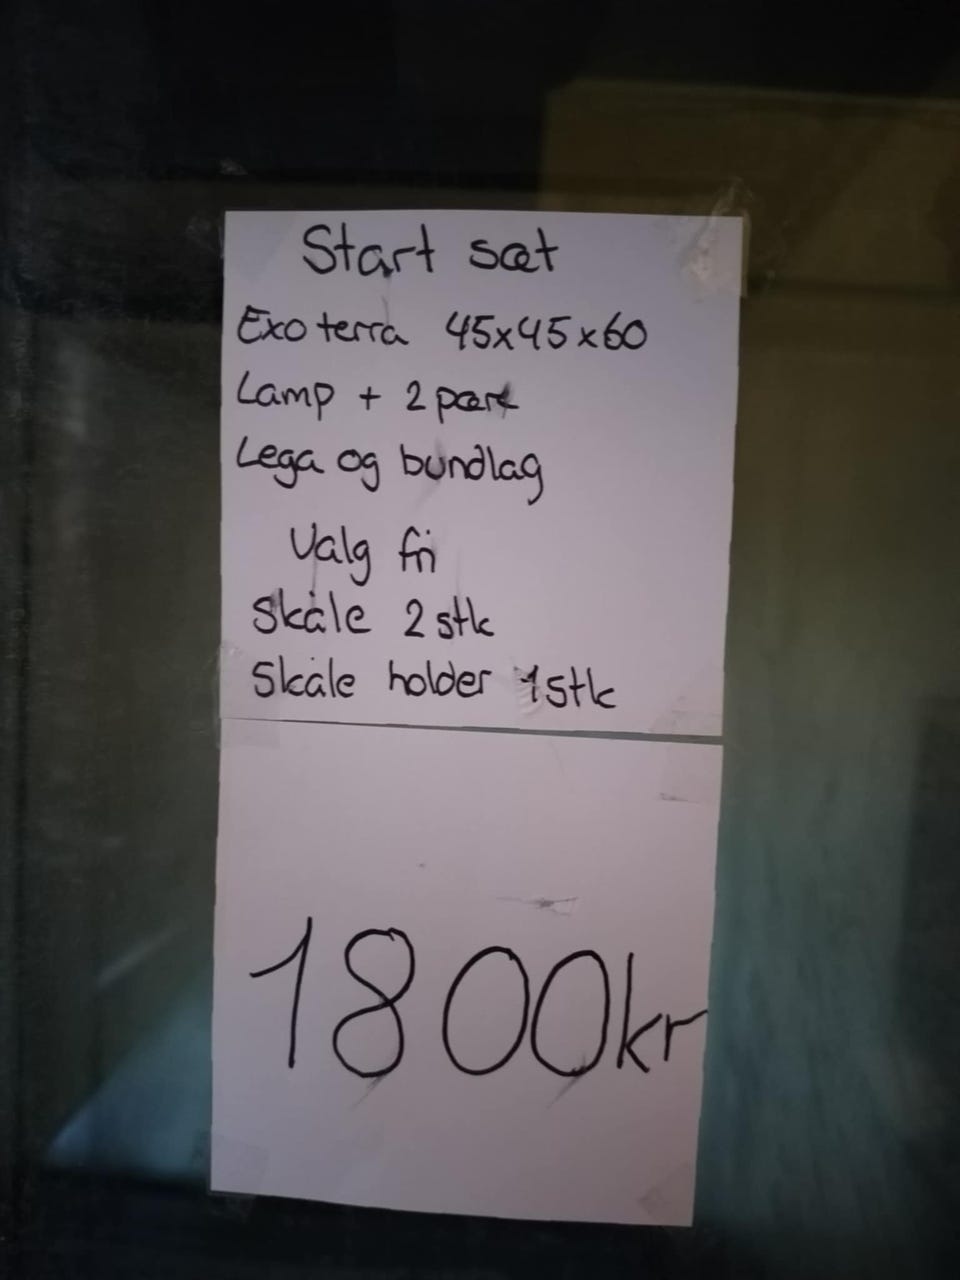 Start sæt
Exo terra 45x45x60
Lamp + 2 pære
Lega og bundlag
Valg fri
Skåle 2 stk
Skåle holder 1 stk
1800kr